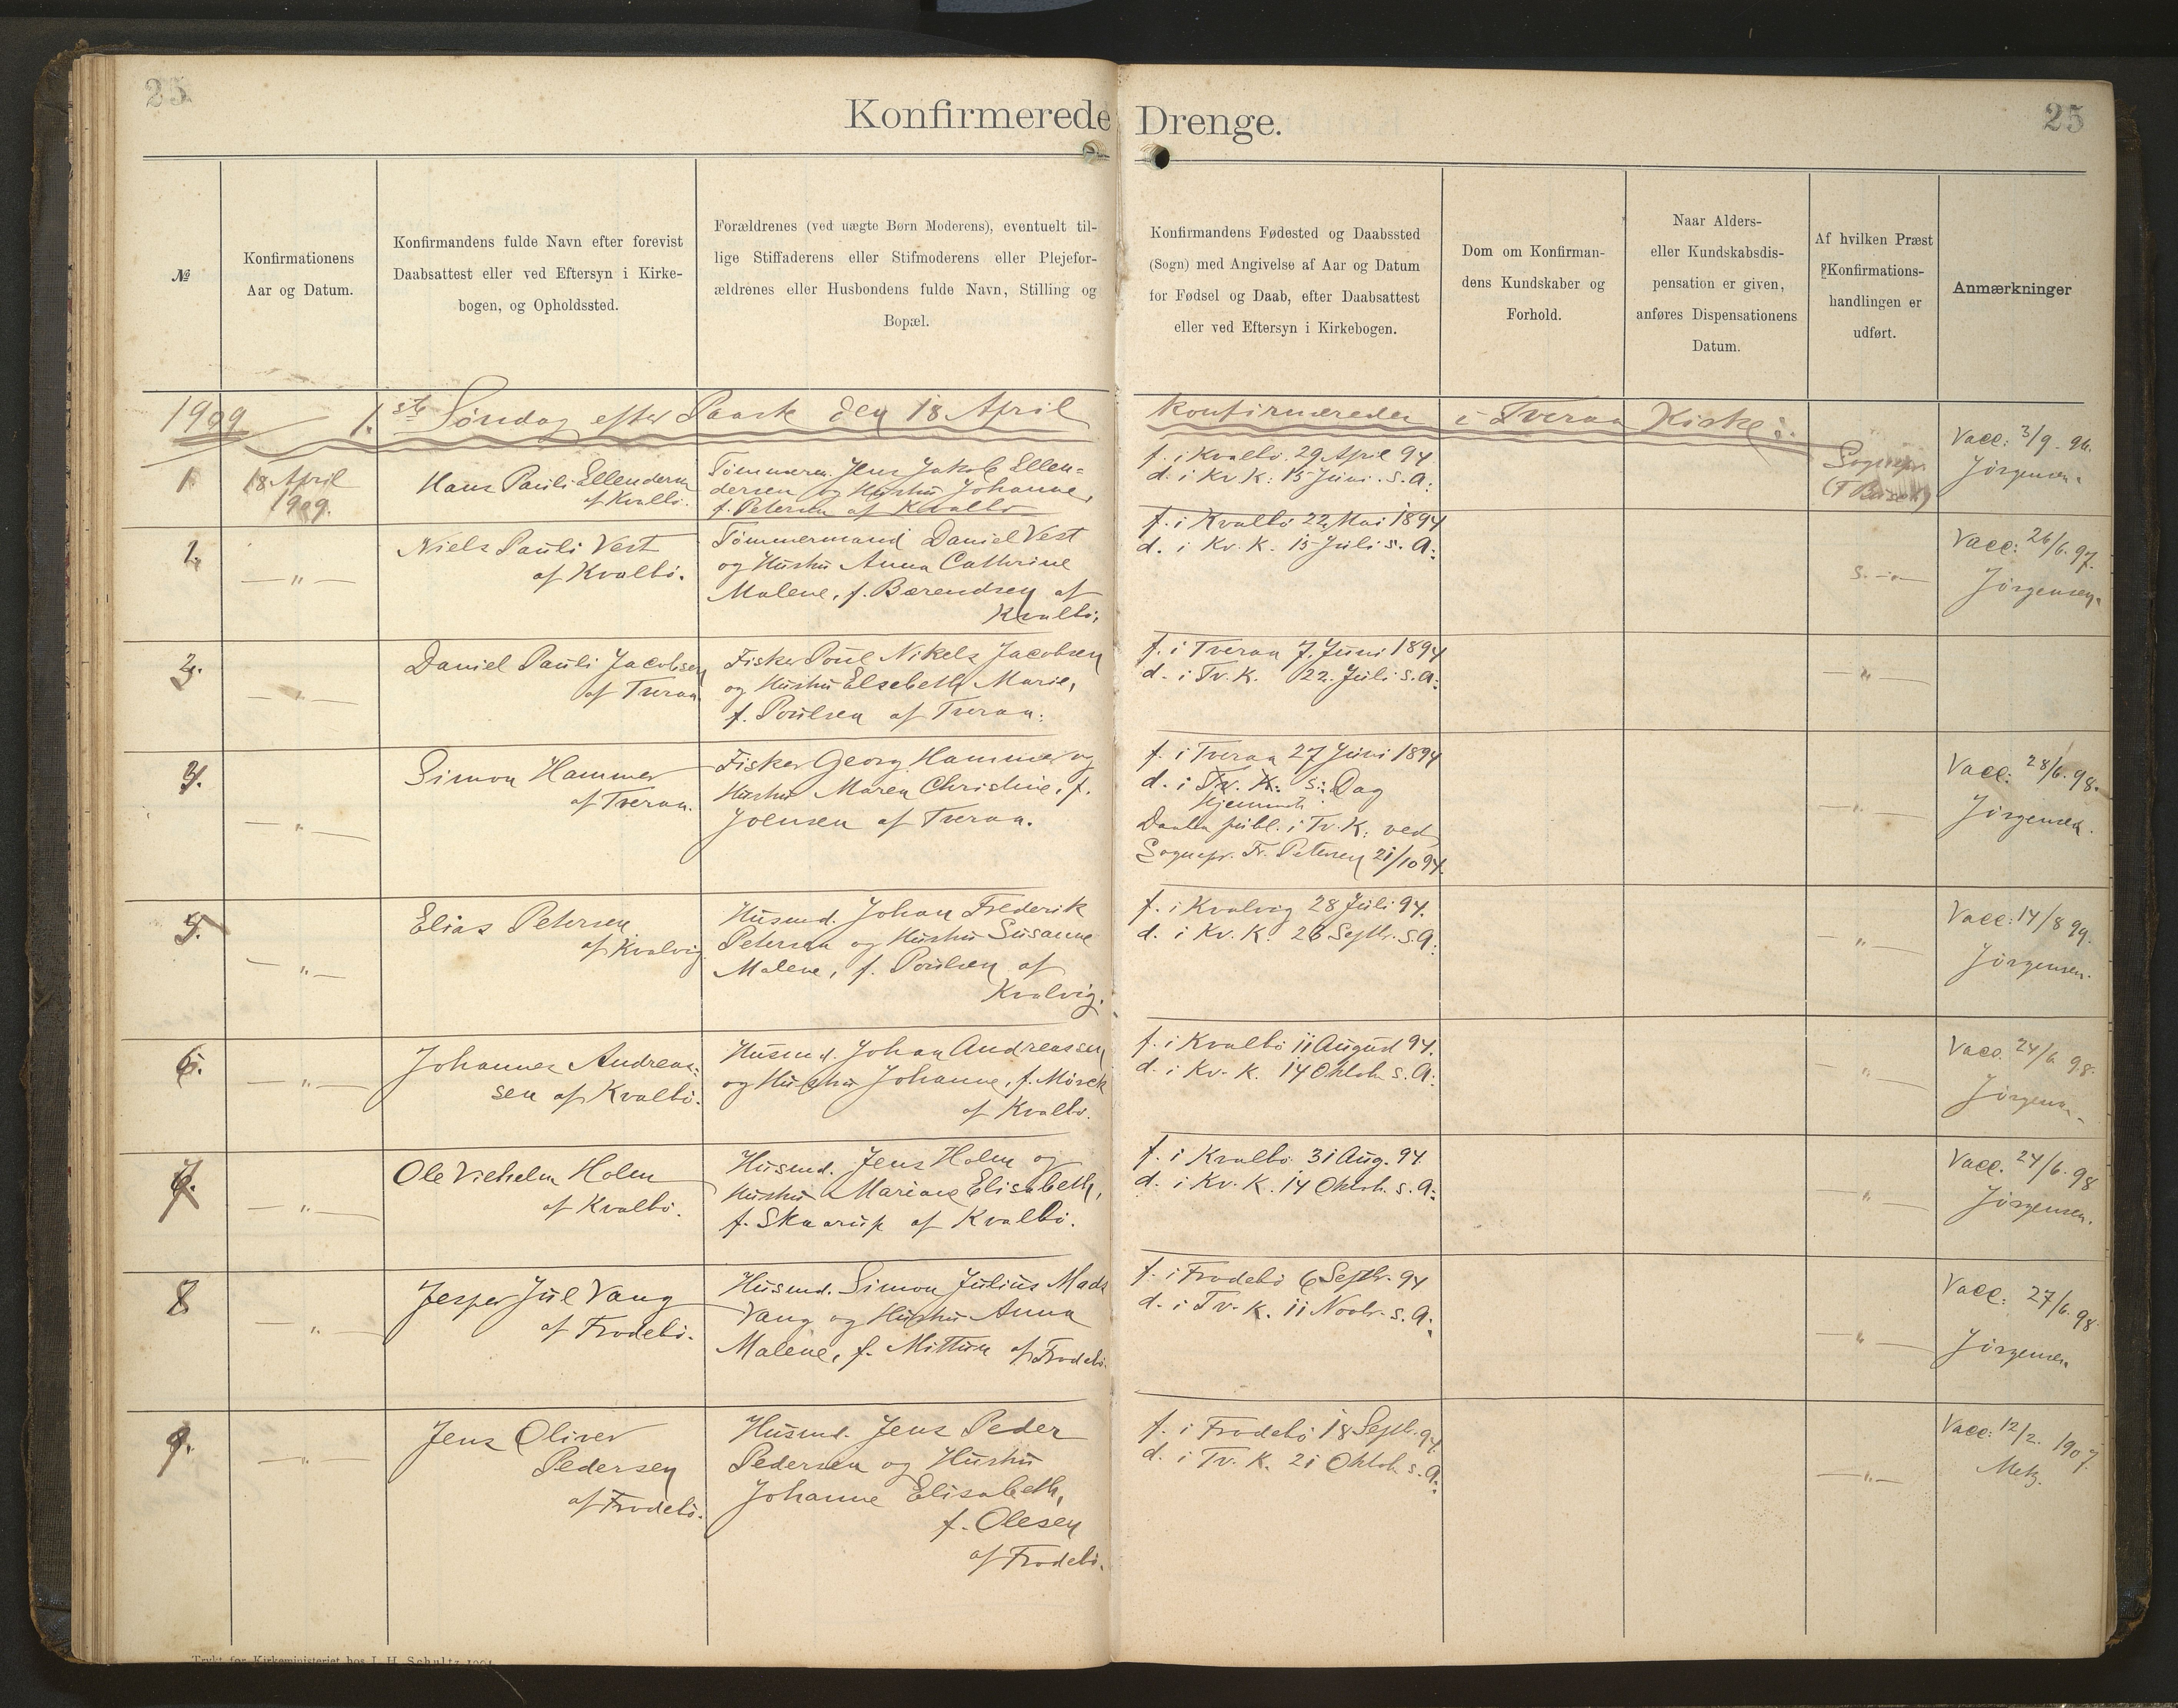 25
25
Konfirmerede Drenge.
№
Konfirmationens
Aar og Datum.
Konfirmandens fulde Navn efter forevist
Daabsattest eller ved Eftersyn i Kirke-
bogen, og Opholdssted.
Forældrenes (ved uægte Børn Moderens), eventuelt til-
lige Stiffaderens eller Stifmoderens eller Plejefor-
ældrenes eller Husbondens fulde Navn, Stilling og
Bopæl.
Konfirmandens Fødested og Daabssted
(Sogn) med Angivelse af Aar og Datum
for Fødsel og Daab, efter Daabsattest
eller ved Eftersyn i Kirkebogen.
Dom om Konfirman-
dens Kundskaber og
Forhold.
Naar Alders-
eller Kundskabsdis-
pensation er given,
anføres Dispensationens
Datum.
Af hvilken Præst
Konfirmations-
handlingen er
udført.
Anmærkninger
1909 1.ste Søndag efter Paaske den 18 April konfirmereder i Tveraa Kirke:
1
18 April
1909.
Hans Pauli Ellendersen
af Kvalbø.
Tømmerm. Jens Jakob Ellen=
dersen og Hustru Johanne,
f. Petersen af Kvalbø
f. i Kvalbø 29 April 94
d. i Kv. K: 15 Juni. S. A:
Sognepr.
Vacc: 3/9. 96.
Jörgensen.
2.
—„—
Niels Pauli Vest
af Kvalbø.
Tømmermand Daniel Vest
og Hustru Anna Cathrine
Malene, f. Bærendsen af
Kvalbø.
f. i Kvalbø 22. Mai 1894
d. i Kv. K. 15 Juli s. A:
S. —„—
Vacc: 26/6. 97.
Jörgensen.
3.
—„—
Daniel Pauli Jacobsen
af Tveraa.
Fisker Poul Nikels Jacobsen
og Hustru Elsebeth Marie,
f. Poulsen af Tveraa.
f. i Tveraa 7. Juni 1894
d. i Tv. K. 22. Juli S. A:
—„—
4.
—„—
Simon Hammer
af Tveraa.
Fisker Georg Hammer og
Hustru Maren Christine, f.
Joensen af Tveraa.
f. i Tveraa 27 Juni 1894
d. i Tv. K: S: Dag
Hjemmet:
Daaben publ. i Tv. K: ved
Sognepr. Fr. Petersen 21/10 94.
—„—
Vacc: 28/6. 98.
Jörgensen.
5.
—„—
Elias Petersen
af Kvalvig.
Husmd. Johan Frederik
Petersen og Hustru Susanne
Malene, f. Poulsen af
Kvalvig.
f. i Kvalvig 28 Juli 94.
d. i Kv. K. 26 Septbr. S. A:
—„—
Vacc: 14/8 99.
Jörgensen.
6.
—„—
Johannes Andreas=
sen af Kvalbø.
Husmd. Johan Andreassen
og Hustru Johanne, f. Mörck
af Kvalbø.
f. i Kvalbø 11 August 94.
d. i Kv. K. 14 Oktob. s. A:
—„—
Vacc. 24/6 98.
Jörgensen.
7.
—„—
Ole Vilhelm Holm
af Kvalbø.
Husmd. Jens Holm og
Hustru Mariane Elisabeth,
f. Skaarup af Kvalbø.
f. i Kvalbø 31 Aug. 94.
d. i Kv. K. 14 Oktob. s. A:
—„—
Vacc. 24/6. 98
Jörgensen.
8
—„—
Jesper Jul Vang
af Frodebø.
Husmd. Simon Julius Mads
Vang og Hustru Anna
Malene, f. Mittun af Frodebø.
f. i Frodebø 6 Septbr. 94
d. i Tv. K. 11 Novbr. s. A:
—„—
Vacc: 27/6. 98
Jörgensen
9.
—„—
Jens Oliver
Pedersen
af Frodebø.
Husmd. Jens Peder
Pedersen og Hustru
Johanne Elisabeth,
f. Olesen
af Frodebø.
f. i Frodebø 18 Septb. 94.
d. i Tv. K. 21 Oktob. s. A:
—„—
Vacc: 12/2. 1907.
Metz.
Trykt for Kirkeministeriet hos J. H. Schultz 1904